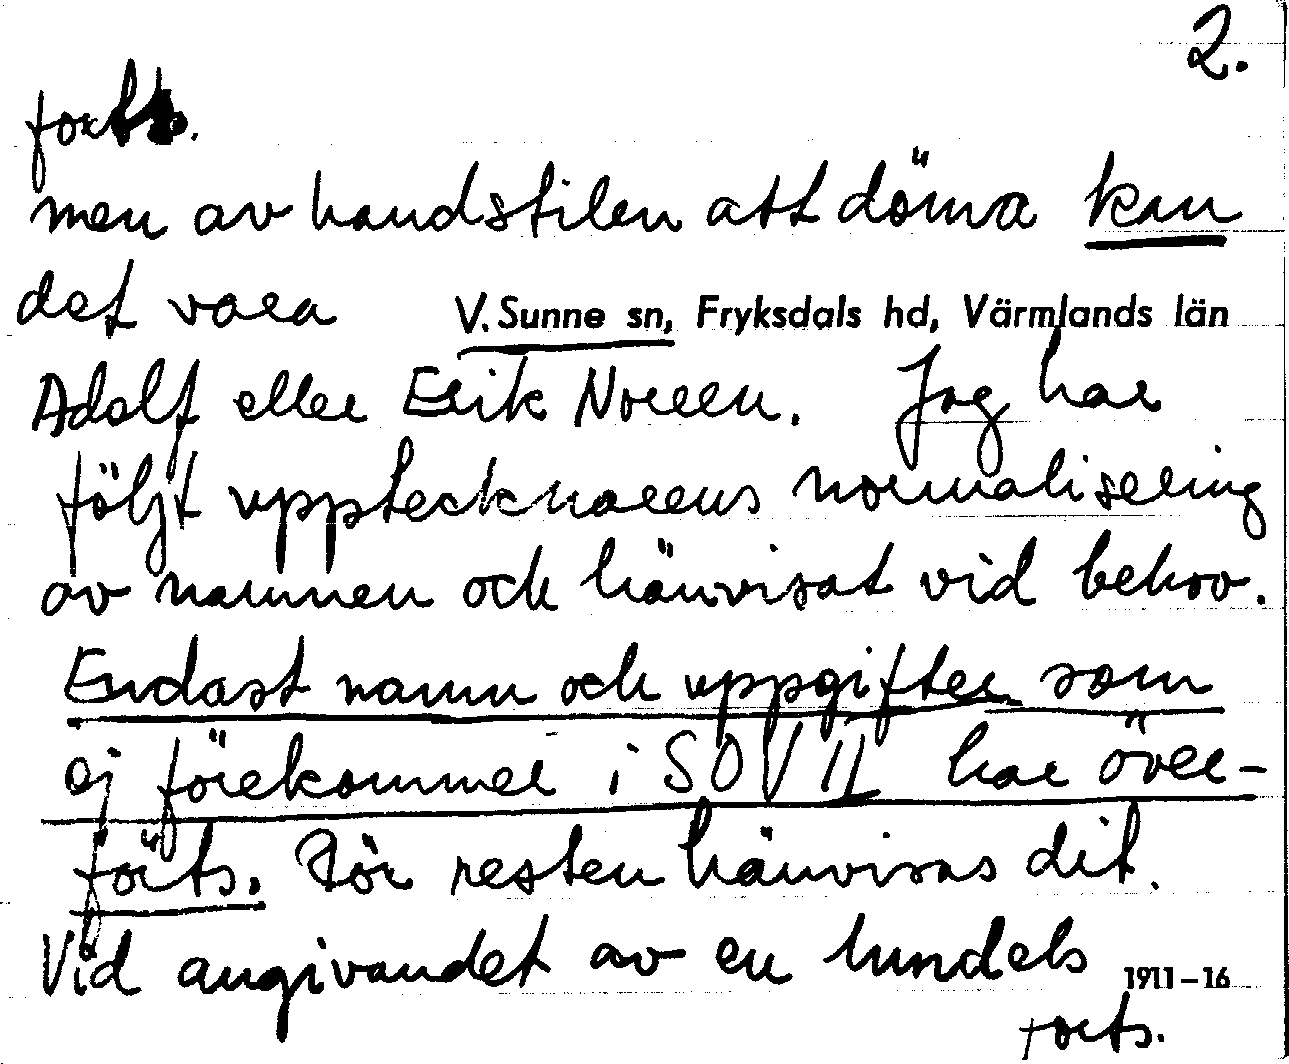 2.
forts.
men av handstilen att döma kan
det vara V. Sunne sn, Fryksdals hd, Värmlands län
Adolf eller Erik Noreen. Jag har
följt upptecknarens normalisering
av namnen och hänvisat vid behov.
Endast namn och uppgifter som
ej förekommer i SOV II har över-
förts. För resten hänvisas dit.
Vid angivandet av en hundels 1911–16
forts.